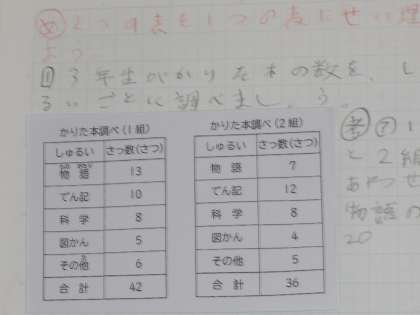 め 2つの表を1つの表にせい理
よう。
1 3年生がかりた本の数を、し
るいごとに調べましょう。
かりた本調べ(1組)
しゅるい さっ数(さつ)
物語 13
でん記 10
科学 8
図かん 5
その他 6
合計 42
かりた本調べ(2組)
しゅるい さっ数(さつ)
物語 7
でん記 12
科学 8
図かん 4
その他 5
合計 36
考 ア 1
と2組
あわせ
物語の
20